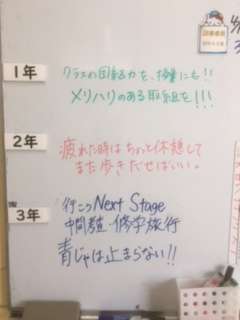 1年
クラスの団結力を、授業にも!!
メリハリのある取組を!!!
2年
疲れた時はちょっと休憩して
また歩きだせばいい。
3年
行こうNext Stage
中間考査・修学旅行
青じゃは止まらない!!